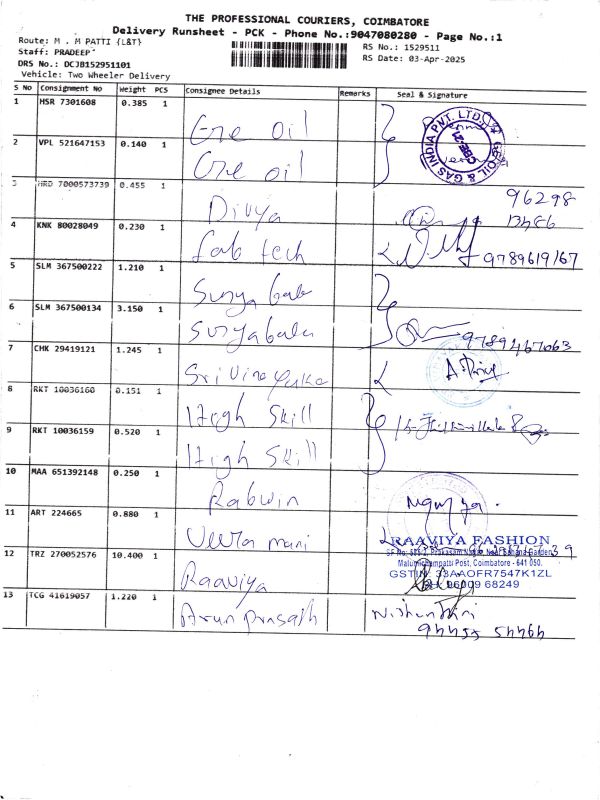 THE PROFESSIONAL COURIERS, COIMBATORE
Delivery Runsheet - PCK - Phone No.:9047080280 - Page No.:1
Route: M . M PATTI {L&T}
RS No.: 1529511
Staff: PRADEEP
RS Date: 03-Apr-2025
DRS No.: DCJB152951101
Vehicle: Two Wheeler Delivery
S No Consignment No Weight PCS Consignee Details Remarks Seal & Signature
1 HSR 7301608 0.385 1 Gre oil
2 VPL 521647153 0.140 1 Gre oil
OIL & GAS INDIA PVT. LTD.
CBE-21
3 HRD 7000573739 0.455 1 Divya 96298
13486
4 KNK 80028049 0.230 1 Lab tech 9789619167
5 SLM 367500222 1.210 1 Surya bala
6 SLM 367500134 3.150 1 Suryabala 9789467063
7 CHK 29419121 1.245 1 Sri Vinayaka
8 RKT 10036160 0.151 1 High Skill
9 RKT 10036159 0.520 1 High Skill
10 MAA 651392148 0.250 1 Rabwin
11 ART 224665 0.880 1 Veera mani
RAAVIYA FASHION
12 TRZ 270052576 10.400 1 Raaviya
Malumichampatti Post, Coimbatore - 641 050.
GSTIN: 33AAOFR7547K1ZL
96009 68249
13 TCG 41619057 1.220 1 Arun prasath Nishanthini
94455 45464